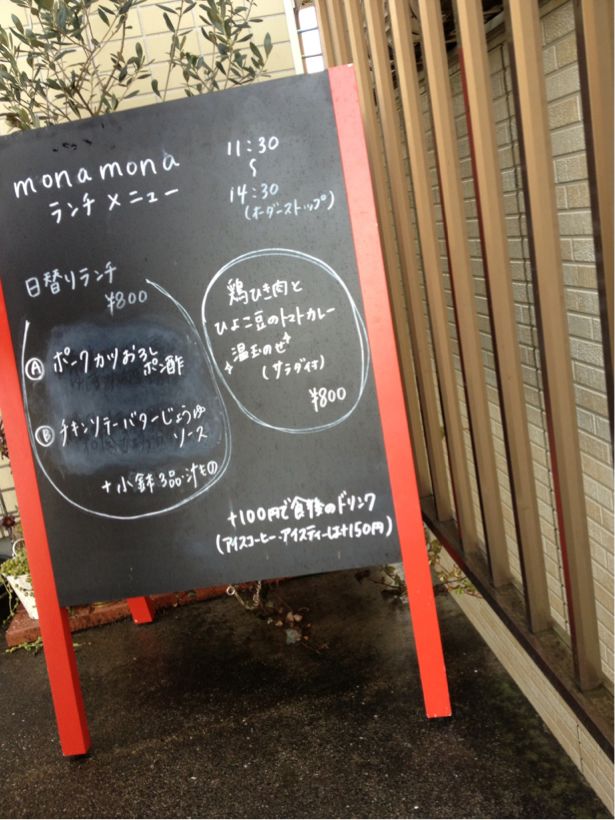 monamona
ランチメニュー
11:30
〜
14:30
(オーダーストップ)
日替りランチ
¥800
Ⓐ ポークカツおろし
ポン酢
Ⓑ チキンソテーバターじょうゆ
ソース
+小鉢3品・汁もの
鶏ひき肉と
ひよこ豆のトマトカレー
温玉のせ
(サラダ付)
¥800
+100円で食後のドリンク
(アイスコーヒー・アイスティーは+150円)